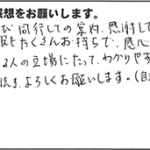 感想をお願いします。
び同行しての案内、感謝して
たくさんお持ちで、感心
る人の立場にたって、わかりやす
よろしくお願いします。